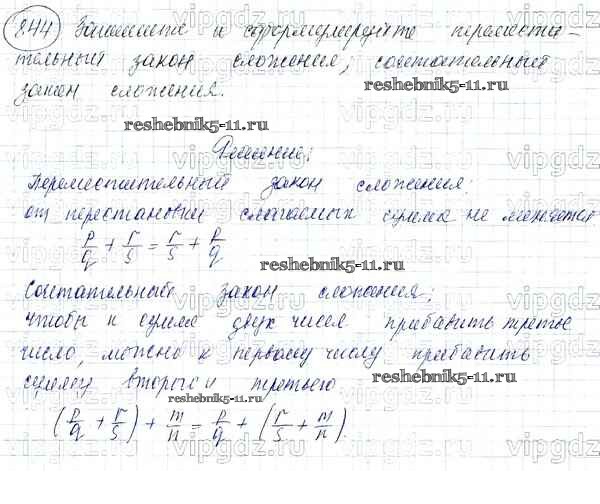 844 Запишите и сформулируйте перемести-
тельный закон сложения, сочетательный
закон сложения.
reshebnik5-11.ru
reshebnik5-11.ru
Решение:
Переместительный закон сложения:
от перестановки слагаемых сумма не меняется
p/q + r/s = r/s + p/q
reshebnik5-11.ru
Сочетательный закон сложения:
чтобы к сумме двух чисел прибавить третье
число, можно к первому числу прибавить
сумму второго и третьего
reshebnik5-11.ru
reshebnik5-11.ru
(p/q + r/s) + m/n = p/q + (r/s + m/n).